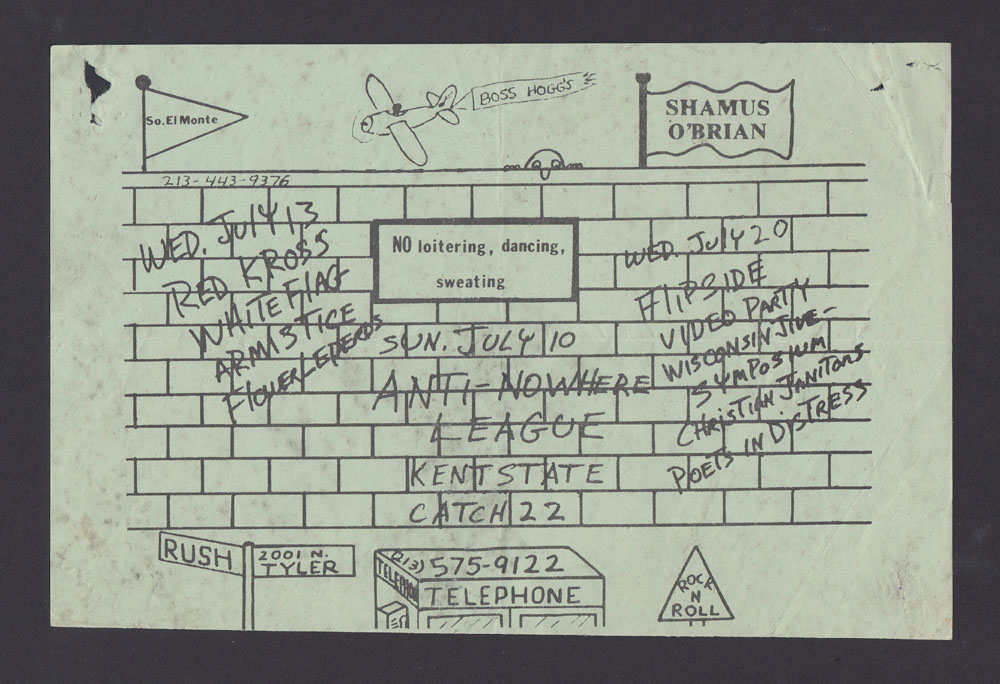 So. El Monte
BOSS HOGG'S
SHAMUS
O'BRIAN
213-443-9376
WED. JULY 13
RED KROSS
WHITE FLAG
ARMISTICE
FLOWER LEPERDS
NO loitering, dancing,
sweating
SUN. JULY 10
ANTI-NOWHERE
LEAGUE
KENT STATE
CATCH 22
WED. JULY 20
FLIPSIDE
VIDEO PARTY
WISCONSIN JIVE-
SYMPOSIUM
CHRISTIAN JANITORS
POETS IN DISTRESS
RUSH
2001 N.
TYLER
(213) 575-9122
TELEPHONE
TELEPHONE
ROCK
N
ROLL